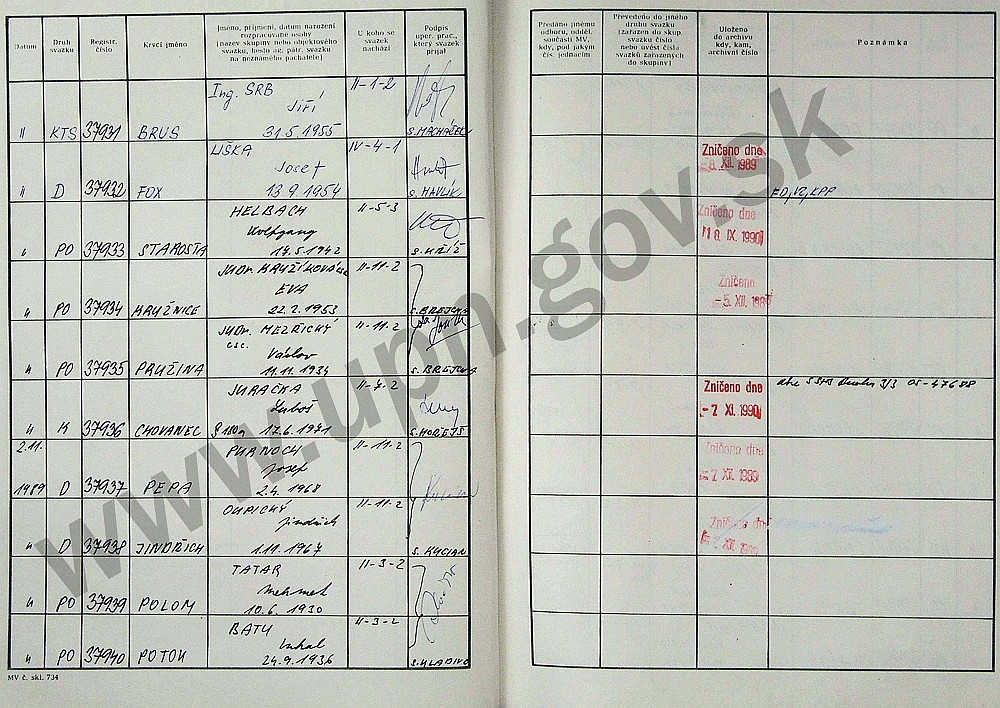 Datum
Druh svazku
Registr. číslo
Krycí jméno
Jméno, příjmení, datum narození
rozpracované osoby
(název skupiny nebo objektového
svazku, heslo ag. pátr. svazku
na neznámého pachatele)
U koho se
svazek
nachází
Podpis
oper. prac.,
který svazek
přijal
Předáno jinému
odboru, odděl.
součásti MV,
kdy, pod jakým
čís. jednacím
Převedeno do jiného
druhu svazku
(zařazen do skup.
svazku číslo
nebo uvést čísla
svazků zařazených
do skupiny)
Uloženo
do archivu
kdy, kam,
archivní číslo
Poznámka
Ing. SRB II-1-2
Jiří
" KTS 37931 BRUS 31.5.1955 S. MACHÁČEK
LIŠKA IV-4-1 Zničeno dne
Josef -8. XII. 1989
" D 37932 FOX 13.9.1954 S. HAVLÍK
HELBACH II-5-3 Zničeno dne
Wolfgang 18. IX. 1990
" PO 37933 STAROSTA 17.5.1942 S. KŘÍŽ
JUDr. KRUŽÍKOVÁ CSc. II-11-2 Zničeno
EVA -5. XII. 1989
" PO 37934 KRUŽNICE 22.2.1953 S. BREJCHA
JUDr. MEZŘICKÝ II-11-2
csc. Václav
" PO 37935 PRUŽINA 11.11.1934 S. BREJCHA
JURAČKA II-7-2 Zničeno dne
Luboš -7. XI. 1990
" K 37936 CHOVANEC 17.6.1971 S. HOŘEJŠ
2.11. II-11-2 Zničeno dne
Josef -7. XII. 1989
1989 D 37937 PEPA 2.4.1968
OUPICKÝ II-11-2 Zničeno dne
Jindřich
" D 37938 JINDŘICH 1.11.1967 S. KUCIAN
TATAR II-3-2
Mehmet
" PO 37939 POLOM 10.6.1930
BATU II-3-2
" PO 37940 POTOK 24.9.1936 S. HLADIVO
MV č. skl. 734
www.upn.gov.sk